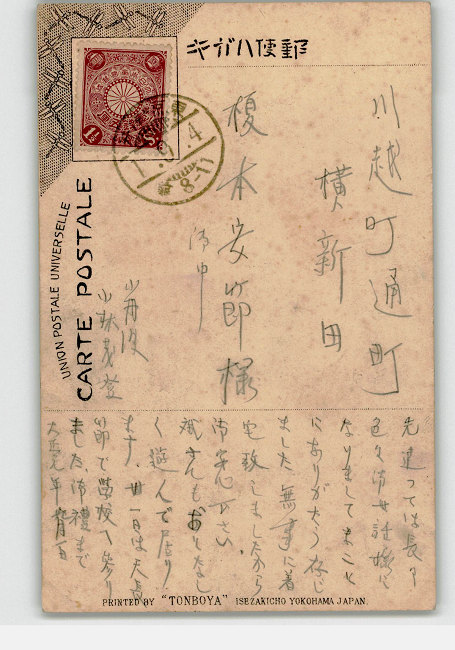 キガハ便郵
UNION POSTALE UNIVERSELLE
CARTE POSTALE
1½ Sn
川越町通町
横新田
榎本安節様
小林茂登
先達っては長々
色々御世話様に
なりましてまこと
にありがたう存じ
ました 無事に着
宅致しましたから
御安心下さい
さんもおとなし
く遊んで居り
ます 廿一日は天長
節で学校へ参り
ました 御禮まで
大正元年 月一日
PRINTED BY "TONBOYA" ISEZAKICHO YOKOHAMA JAPAN.